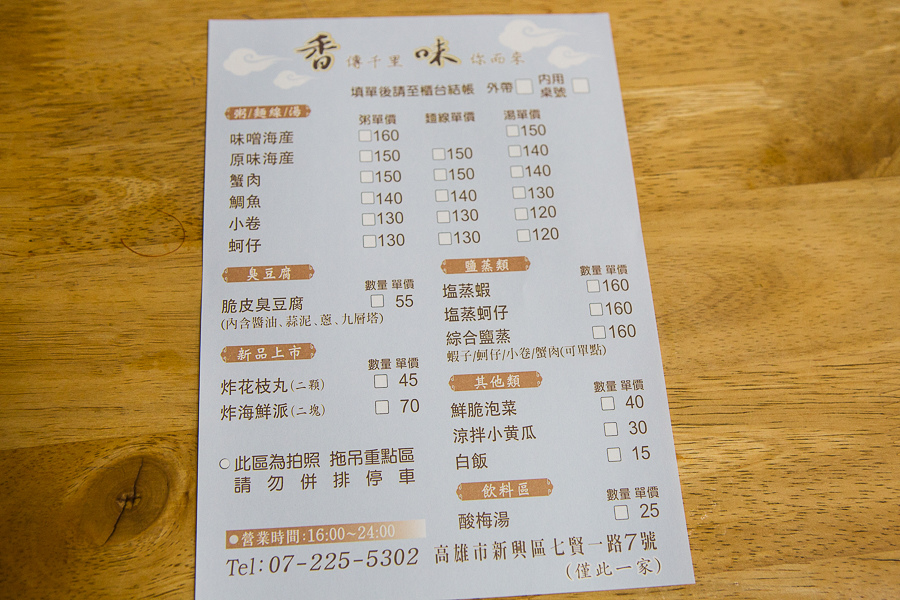 香傳千里 味你而來
填單後請至櫃台結帳 外帶□ 內用桌號□
粥/麵線/湯 粥單價 麵線單價 湯單價
味噌海產 □160 □150
原味海產 □150 □150 □140
蟹肉 □150 □150 □140
鯛魚 □140 □140 □130
小卷 □130 □130 □120
蚵仔 □130 □130 □120
臭豆腐 數量 單價
脆皮臭豆腐 □ 55
(內含醬油、蒜泥、蔥、九層塔)
新品上市 數量 單價
炸花枝丸(二顆) □ 45
炸海鮮派(二塊) □ 70
鹽蒸類 數量 單價
塩蒸蝦 □160
塩蒸蚵仔 □160
綜合鹽蒸 □160
蝦子/蚵仔/小卷/蟹肉(可單點)
其他類 數量 單價
鮮脆泡菜 □ 40
涼拌小黃瓜 □ 30
白飯 □ 15
飲料區 數量 單價
酸梅湯 □ 25
○此區為拍照 拖吊重點區
請勿併排停車
●營業時間:16:00~24:00
Tel:07-225-5302 高雄市新興區七賢一路7號
(僅此一家)